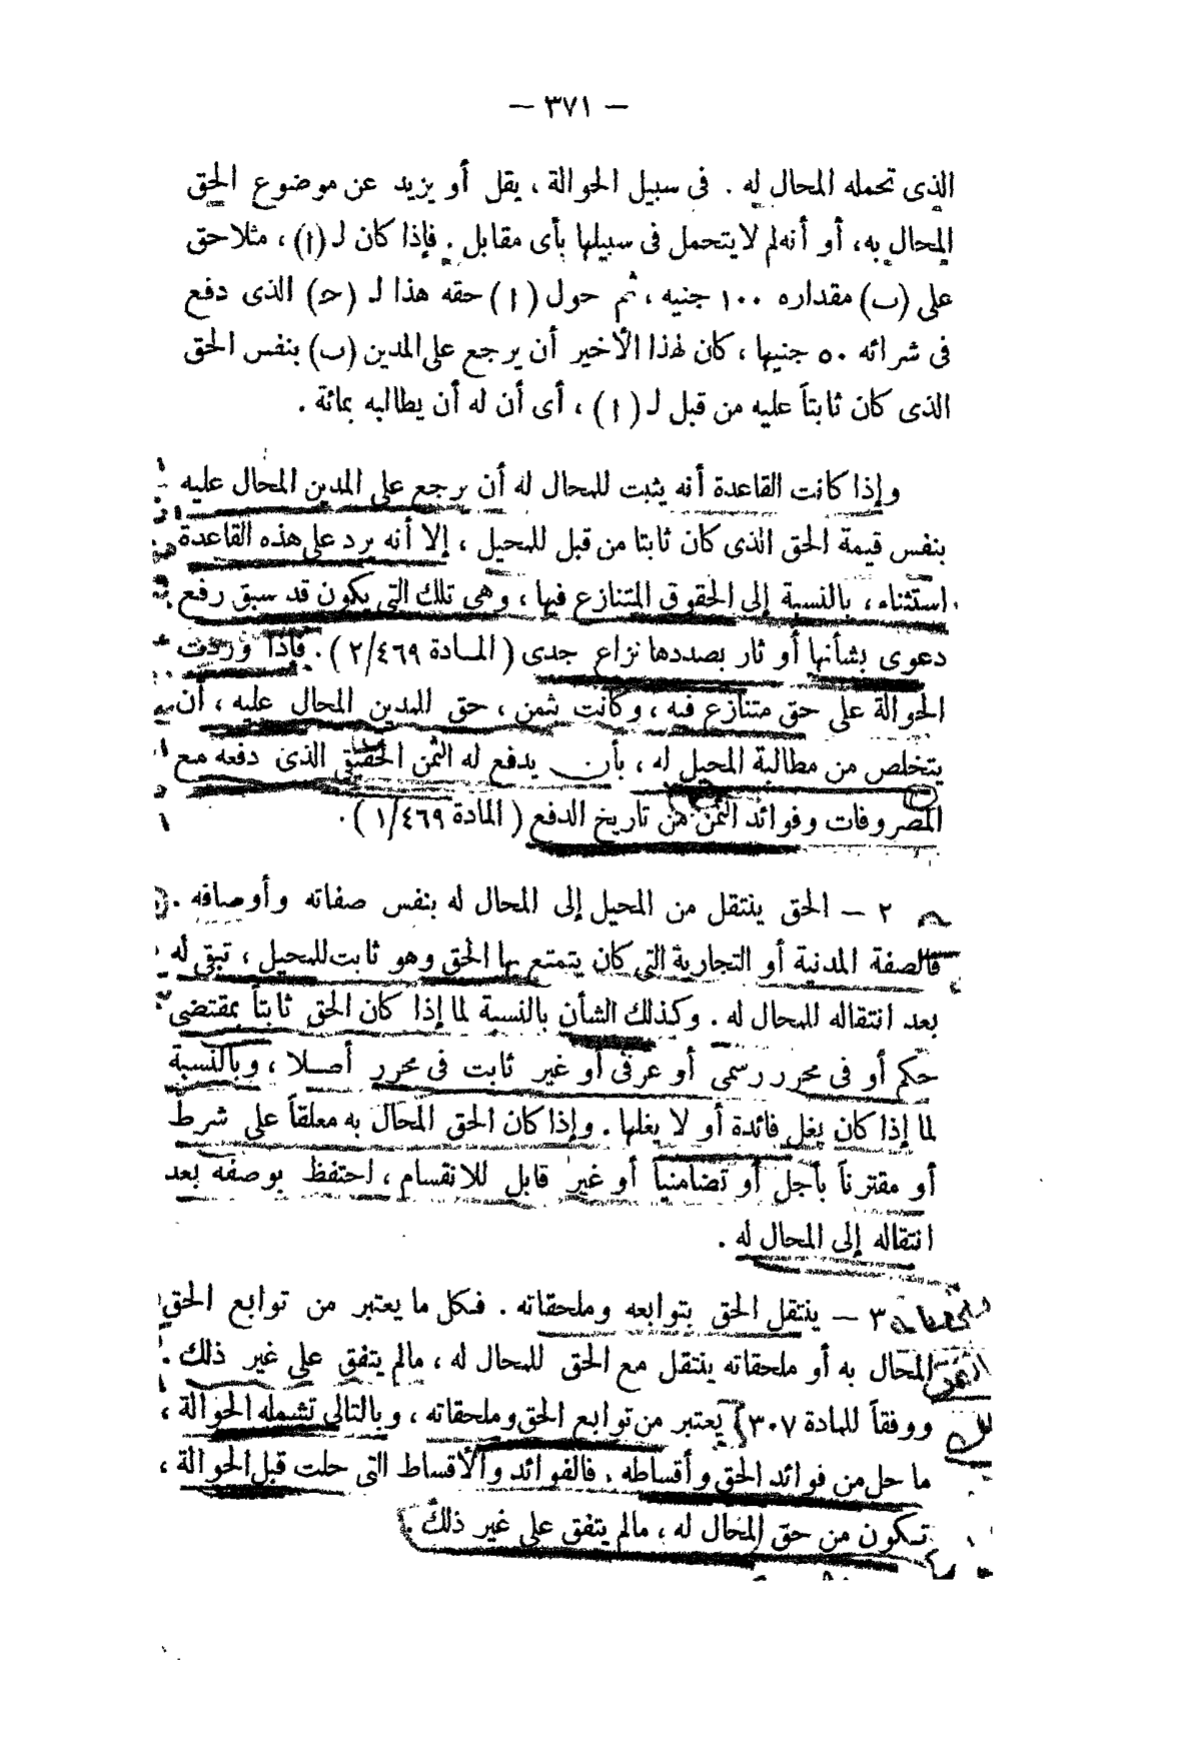 — ٣٧١ —
الذى تحمله المحال له . فى سبيل الحوالة ، يقل أو يزيد عن موضوع الحق
المحال به، أو أنه لم لا يتحمل فى سبيلها بأى مقابل . فإذا كان لـ (ا) ، مثلا حق
على (ب) مقداره ١٠٠ جنيه ، ثم حول (ا) حقه هذا لـ (ح) الذى دفع
فى شرائه ٥٠ جنيها ، كان لهذا الأخير أن يرجع على المدين (ب) بنفس الحق
الذى كان ثابتاً عليه من قبل لـ (ا) ، أى أن له أن يطالبه بمائة .
وإذا كانت القاعدة أنه يثبت للمحال له أن يرجع على المدين المحال عليه
بنفس قيمة الحق الذى كان ثابتا من قبل للمحيل ، إلا أنه يرد على هذه القاعدة
استثناء ، بالنسبة إلى الحقوق المتنازع فيها ، وهى تلك التى يكون قد سبق رفع
دعوى بشأنها أو ثار بصددها نزاع جدى ( المادة ٢/٤٦٩ ) . فإذا وردت
الحوالة على حق متنازع فيه ، وكانت بثمن ، حق للمدين المحال عليه ، أن
يتخلص من مطالبة المحيل له ، بأن يدفع له الثمن الحقيقى الذى دفعه مع
المصروفات وفوائد الثمن من تاريخ الدفع ( المادة ١/٤٦٩ ) .
٢ — الحق ينتقل من المحيل إلى المحال له بنفس صفاته وأوصافه .
فالصفة المدنية أو التجارية التى كان يتمتع بها الحق وهو ثابت للمحيل ، تبقى له
بعد انتقاله للمحال له . وكذلك الشأن بالنسبة لما إذا كان الحق ثابتاً بمقتضى
حكم أو فى محرر رسمى أو عرفى أو غير ثابت فى محرر أصلا ، وبالنسبة
لما إذا كان يغل فائدة أو لا يغلها . وإذا كان الحق المحال به معلقاً على شرط
أو مقترناً بأجل أو تضامنياً أو غير قابل للانقسام ، احتفظ بوصفه بعد
انتقاله إلى المحال له .
٣ — ينتقل الحق بتوابعه وملحقاته . فكل ما يعتبر من توابع الحق
المحال به أو ملحقاته ينتقل مع الحق للمحال له ، مالم يتفق على غير ذلك .
ووفقاً للمادة ٣٠٧ يعتبر من توابع الحق وملحقاته ، وبالتالى تشمله الحوالة ،
ما حل من فوائد الحق وأقساطه . فالفوائد والأقساط التى حلت قبل الحوالة ،
تكون من حق المحال له ، مالم يتفق على غير ذلك .